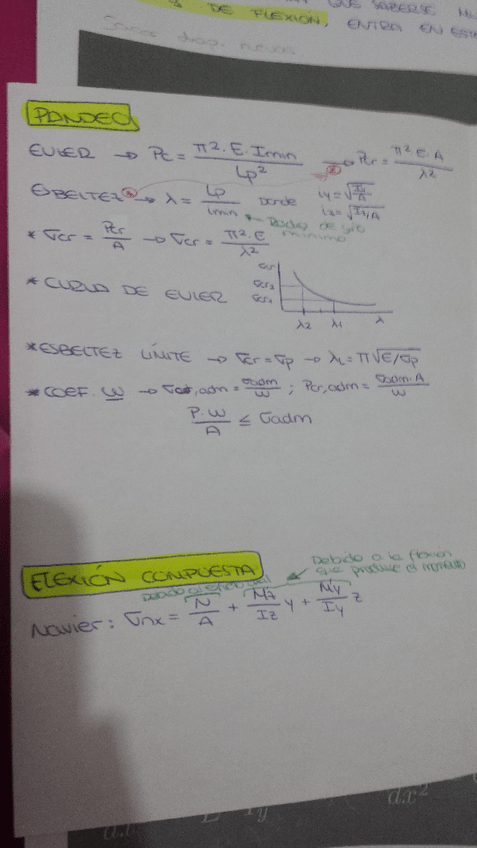 QUE SABERSE
Y DE FLEXIÓN, ENTRA EN
PANDEO
EULER → Pc = π²·E·Imin / Lp² → Pcr = π²·E·A / λ²
ESBELTEZ → λ = Lp / imin DONDE iy = √Iy/A
iz = √Iz/A
Radio de giro
mínimo
* σcr = Pcr / A → σcr = π²·E / λ²
* CURVA DE EULER
σcr
σcr2
σcr1
λ2 λ1 λ
* ESBELTEZ LÍMITE → σcr = σp → λL = π√E/σp
* COEF. W → σcr,adm = σadm / W ; Pcr,adm = σadm·A / W
P·W / A ≤ σadm
FLEXIÓN COMPUESTA
Debido a la flexión
que produce el momento
Debido al
Navier: σnx = N / A + Mz / Iz y + My / Iy z
dx²